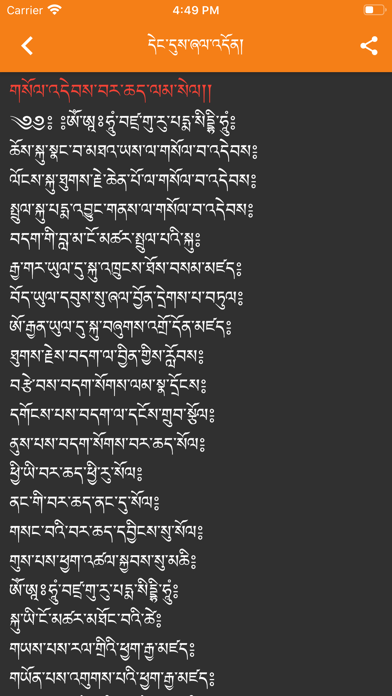 Carrier 4:49 PM
དེང་དུས་ཞལ་འདོན།
གསོལ་འདེབས་བར་ཆད་ལམ་སེལ།།
༄༅༅༔ ༔ཨོཾ་ཨཱཿཧཱུྂ་བཛྲ་གུ་རུ་པདྨ་སིདྡྷི་ཧཱུྂ༔
ཆོས་སྐུ་སྣང་བ་མཐའ་ཡས་ལ་གསོལ་བ་འདེབས༔
ལོངས་སྐུ་ཐུགས་རྗེ་ཆེན་པོ་ལ་གསོལ་བ་འདེབས༔
སྤྲུལ་སྐུ་པདྨ་འབྱུང་གནས་ལ་གསོལ་བ་འདེབས༔
བདག་གི་བླ་མ་ངོ་མཚར་སྤྲུལ་པའི་སྐུ༔
རྒྱ་གར་ཡུལ་དུ་སྐུ་འཁྲུངས་ཐོས་བསམ་མཛད༔
བོད་ཡུལ་དབུས་སུ་ཞལ་བྱོན་དྲེགས་པ་བཏུལ༔
ཨོ་རྒྱན་ཡུལ་དུ་སྐུ་བཞུགས་འགྲོ་དོན་མཛད༔
ཐུགས་རྗེས་བདག་ལ་བྱིན་གྱིས་རློབས༔
བརྩེ་བས་བདག་སོགས་ལམ་སྣ་དྲོངས༔
དགོངས་པས་བདག་ལ་དངོས་གྲུབ་སྩོལ༔
ནུས་པས་བདག་སོགས་བར་ཆད་སོལ༔
ཕྱི་ཡི་བར་ཆད་ཕྱི་རུ་སོལ༔
ནང་གི་བར་ཆད་ནང་དུ་སོལ༔
གསང་བའི་བར་ཆད་དབྱིངས་སུ་སོལ༔
གུས་པས་ཕྱག་འཚལ་སྐྱབས་སུ་མཆི༔
ཨོཾ་ཨཱཿཧཱུྂ་བཛྲ་གུ་རུ་པདྨ་སིདྡྷི་ཧཱུྂ༔
སྐུ་ཡི་ངོ་མཚར་མཐོང་བའི་ཚེ༔
གཡས་པས་རལ་གྲིའི་ཕྱག་རྒྱ་མཛད༔
གཡོན་པས་འགུགས་པའི་ཕྱག་རྒྱ་མཛད༔